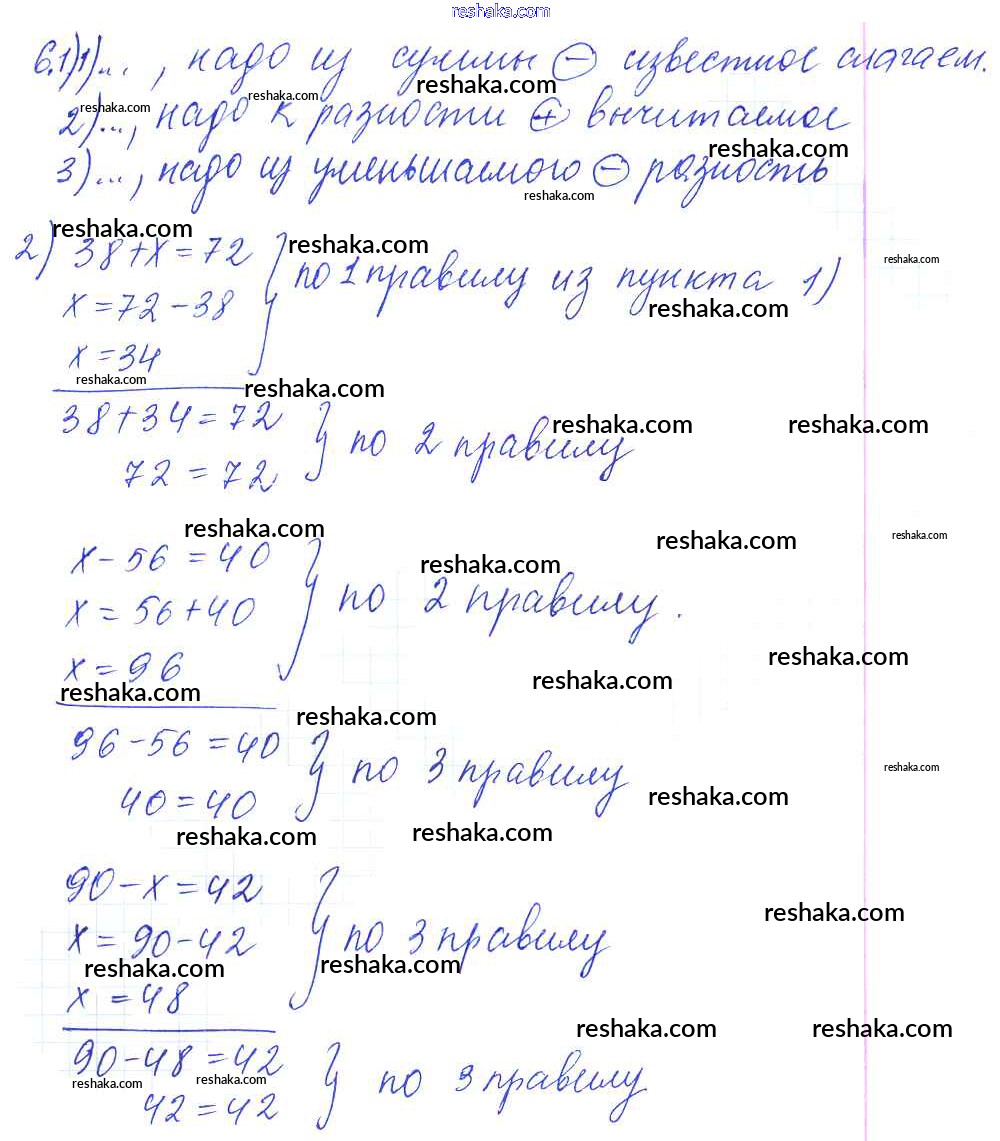 reshaka.com
6.1)1)..., надо из суммы ⊖ известное слагаем.
reshaka.com
reshaka.com reshaka.com
2)..., надо к разности ⊕ вычитаемое
reshaka.com
3)..., надо из уменьшаемого ⊖ разность
reshaka.com
reshaka.com reshaka.com
2) 38+x=72 } по 1 правилу из пункта 1)
reshaka.com
x=72-38
reshaka.com
x=34
reshaka.com reshaka.com
38+34=72 } по 2 правилу
reshaka.com reshaka.com
72=72
reshaka.com reshaka.com reshaka.com
x-56=40
reshaka.com
x=56+40 } по 2 правилу.
x=96
reshaka.com reshaka.com reshaka.com
reshaka.com
96-56=40 } по 3 правилу
reshaka.com
40=40
reshaka.com
reshaka.com reshaka.com
90-x=42
reshaka.com
x=90-42 } по 3 правилу
reshaka.com reshaka.com
x=48
reshaka.com reshaka.com
90-48=42 } по 3 правилу
reshaka.com reshaka.com
42=42